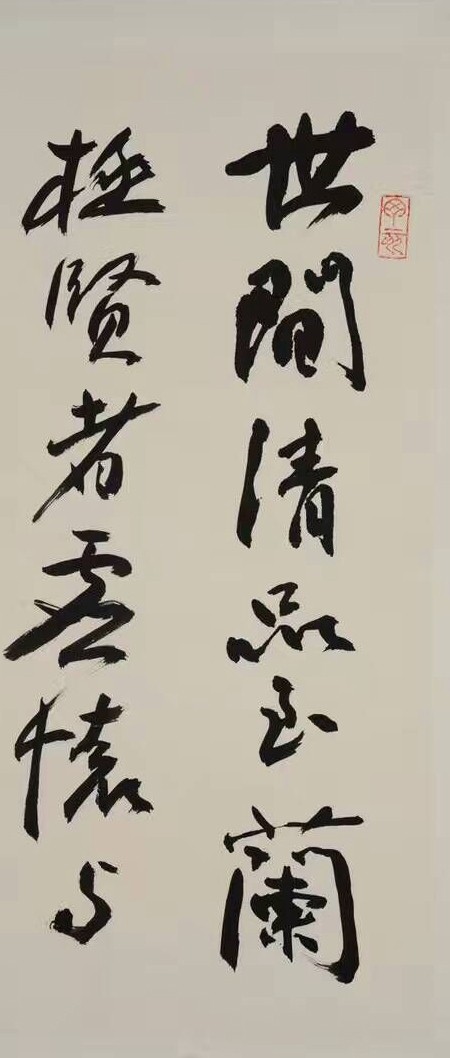 世間清品至蘭
極賢者虛懷与